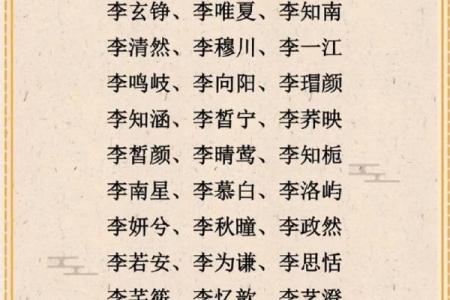 李玄铮、李唯夏、李知南
李清然、李穆川、李一江
李鸣岐、李向阳、李瑁颜
李知涵、李皙宁、李荞映
李皙颜、李晴莺、李知栀
李南星、李慕白、李洛屿
李妍兮、李秋瞳、李政然
李若安、李为谦、李思恬
李芊筱、李忆歆、李艺澄